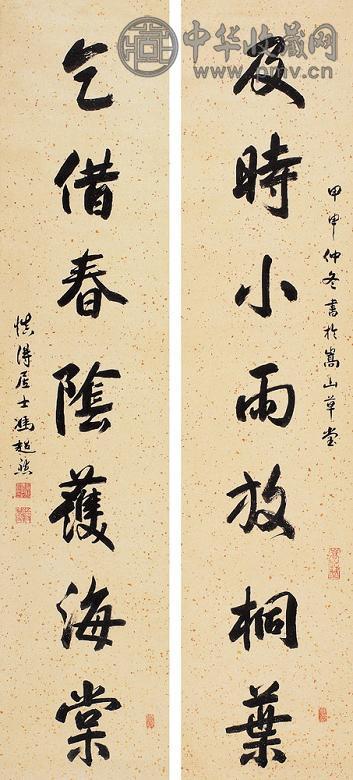 中华收藏网
www.pmv.cn
甲申仲冬書於嵩山草堂
及時小雨放桐葉
乞借春陰護海棠
慎得居士馮起